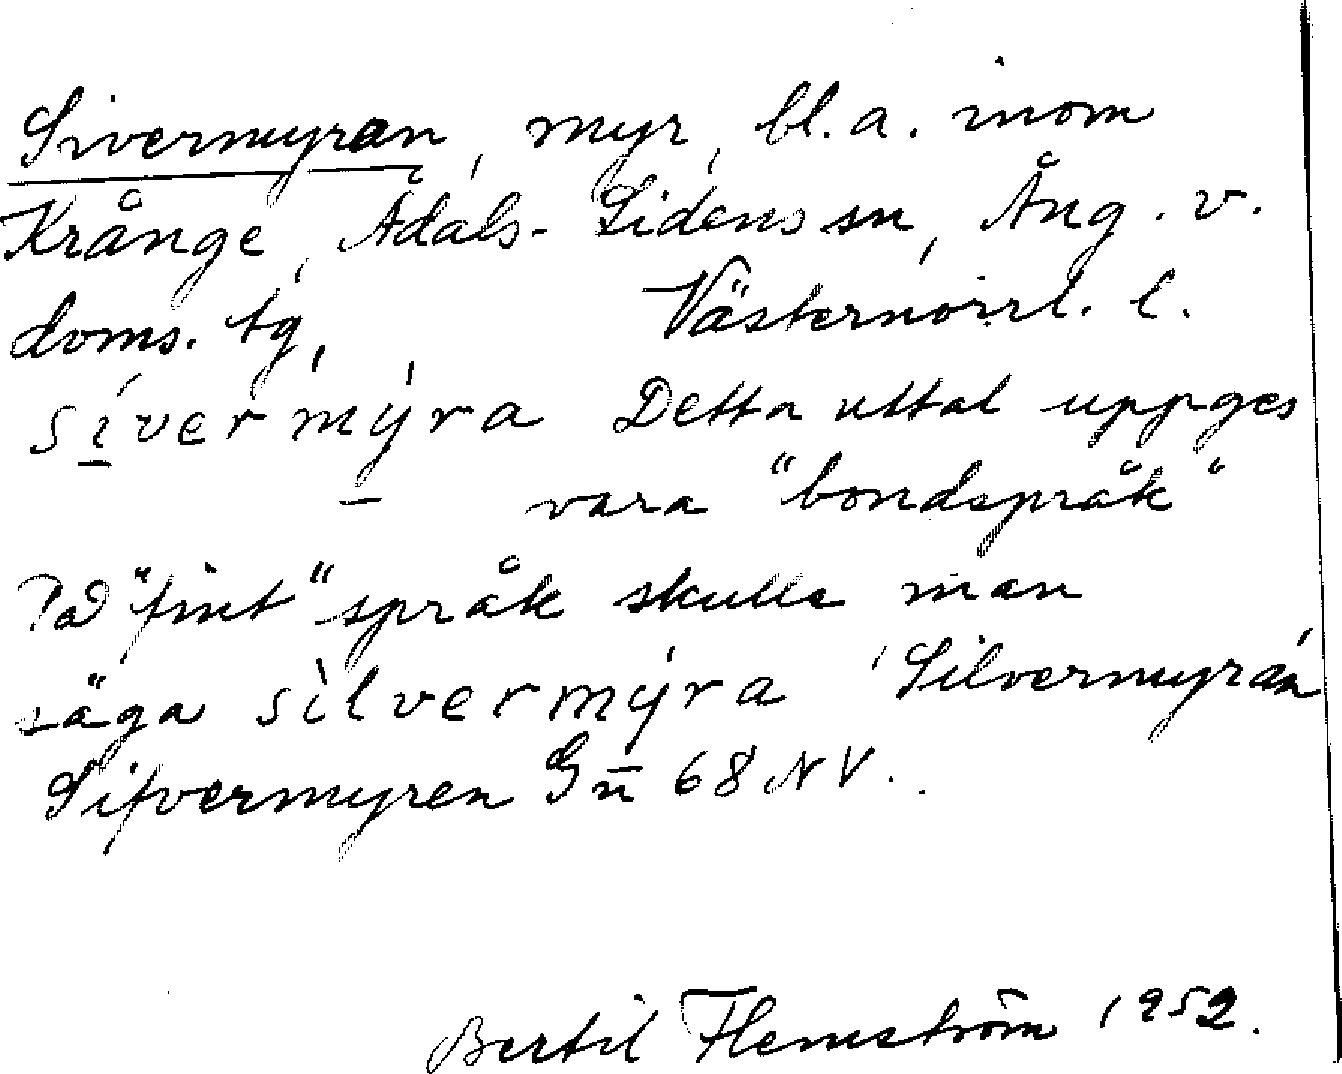 Sivermyran, myr, bl. a. inom
Krånge, Ådals-Lidens sn, Ång. v.
doms. tg, Västernorrl. l.
sívermýra Detta uttal uppges
vara "bondspråk"
På "fint" språk skulle man
säga sìlvermýra, Silvermyran
Silfvermyren Gn 68 NV.
Bertil Flemström 1952.